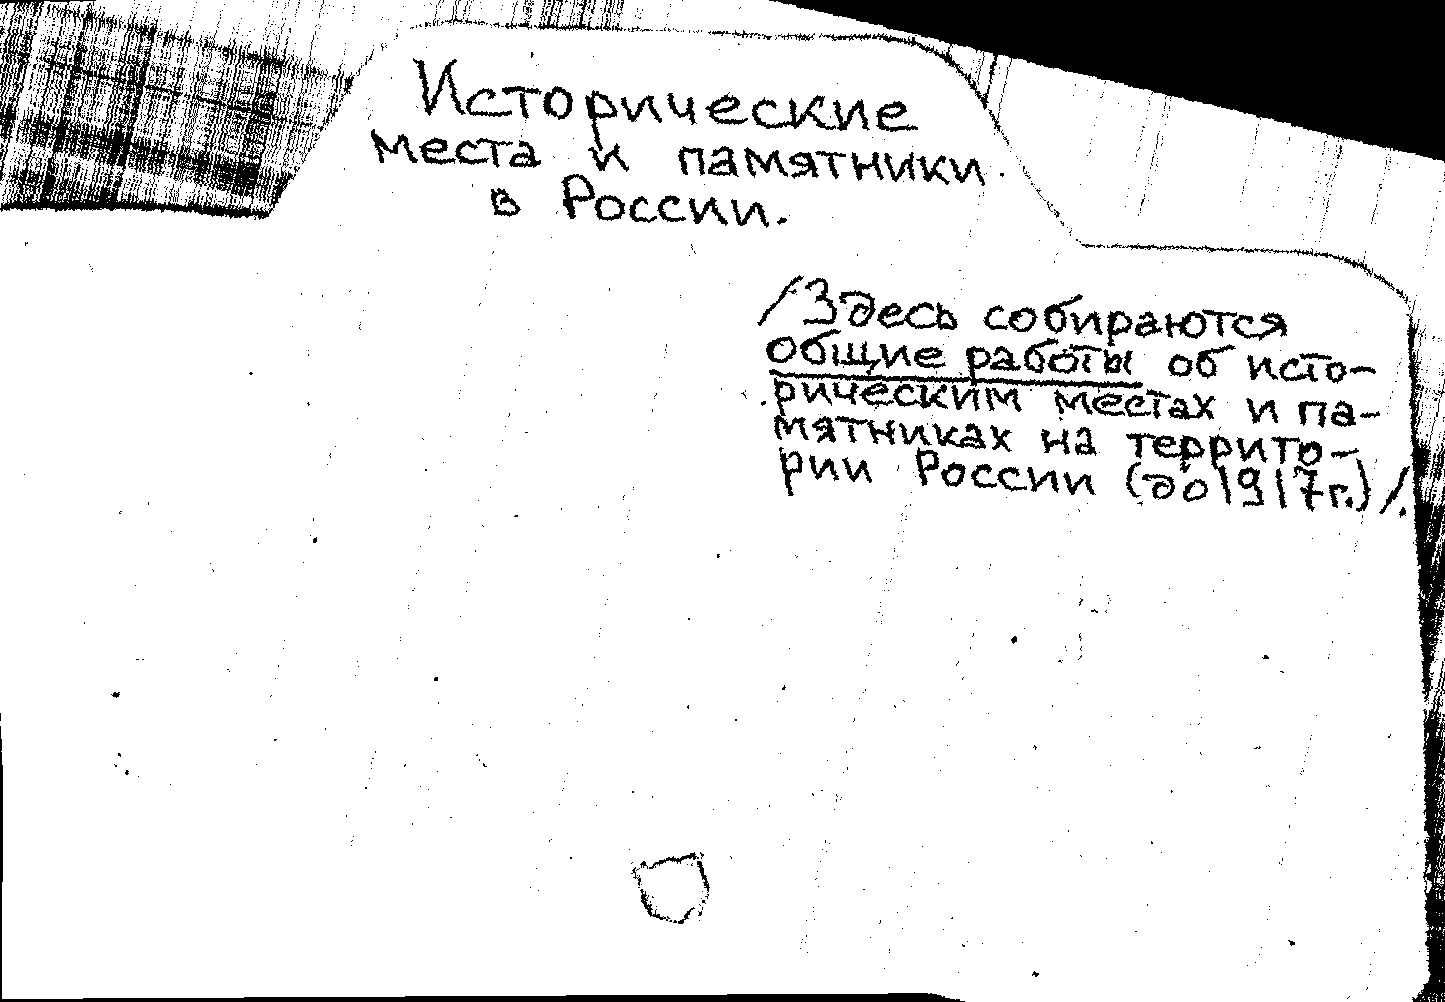 Исторические
места и памятники
в России.
/Здесь собираются
общие работы об исто-
рическим местах и па-
мятниках на террито-
рии России (до 1917г.)/.